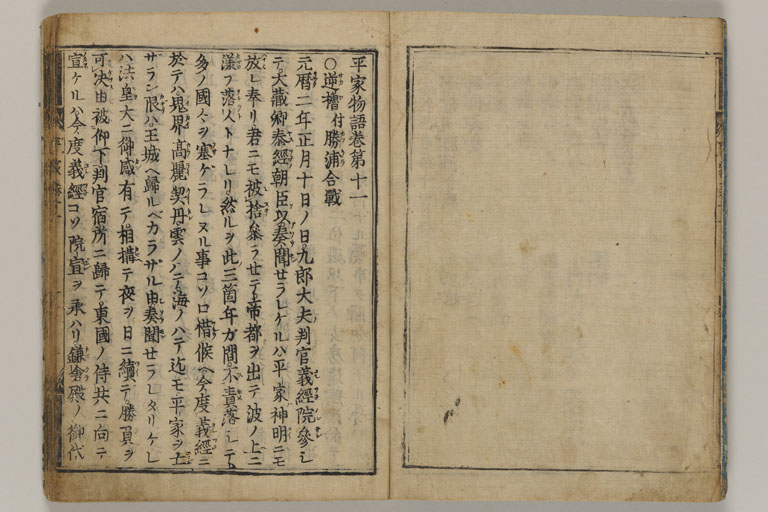 平家物語卷第十一
○逆櫓 付 勝浦合戰
元曆二年正月十日ノ日九郎大夫判官義經院參シ
テ大藏卿泰經朝臣以奏聞セラレケルハ平家神明ニモ
放レ奉リ君ニモ被捨參ラセテ帝都ヲ出テ波ノ上ニ
漾フ落人トナレリ然ルヲ此三箇年ガ間不責落シテ
多ノ國々ヲ塞ゲラレヌル事コソ口惜候ヘ今度義經ニ
於テハ鬼界高麗契丹雲ノハテ海ノハテ迄モ平家ヲ亡
サヾラン限ハ王城ヘ歸ルベカラザル由奏聞セラレタリケレ
ハ法皇大ニ御感有テ相構テ夜ヲ日ニ續テ勝負ヲ
可決由被仰下判官宿所ニ歸テ東國ノ侍共ニ向テ
宣ケルハ今度義經コソ院宣ヲ承ハリ鎌倉殿ノ御代